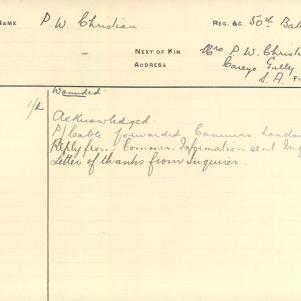 NAME P. W. Christian REG. &C. 50th Bat
NEXT OF KIN Mrs P. W. Christi
ADDRESS Careys Gully
S. A.
Wounded.
Acknowledged.
P/Cable forwarded Commrs London
Reply from Commrs. Information sent Inq
Letter of thanks from Inquirer.